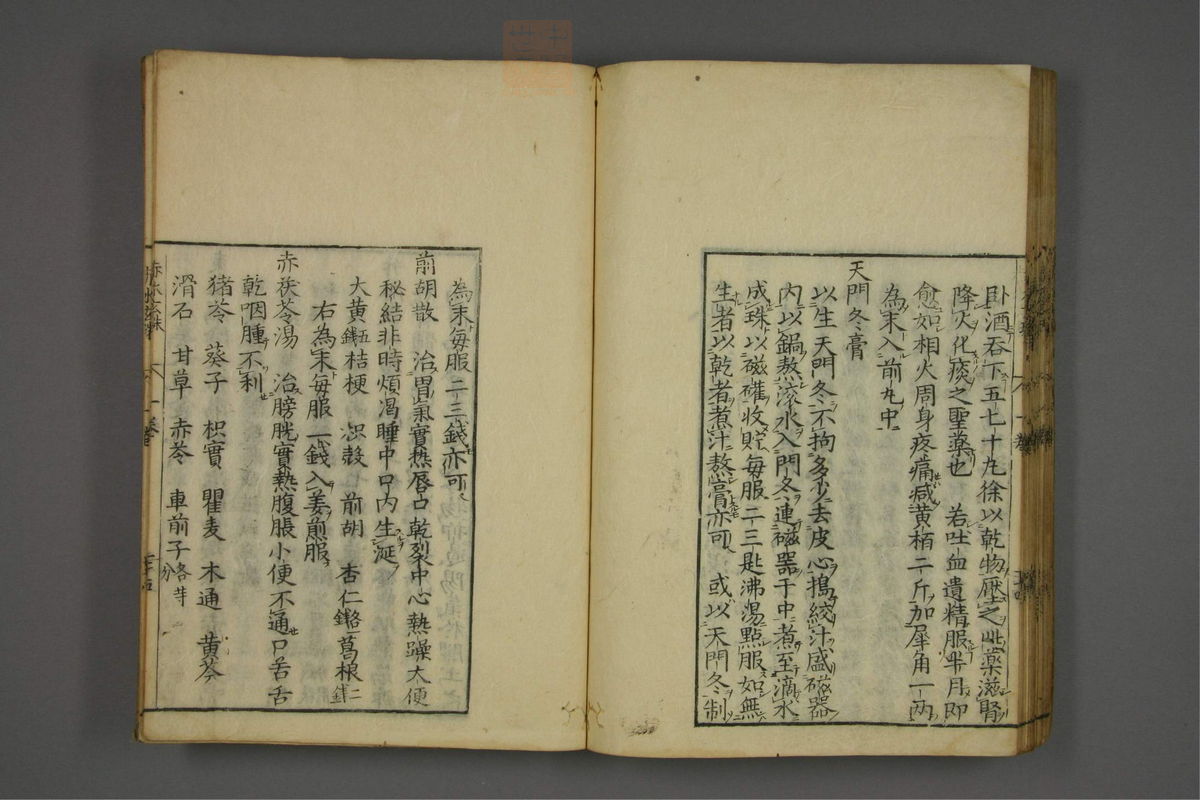 卧酒吞下五七十丸徐以乾物壓之此藥滋腎
降火化痰之聖藥也 若吐血遺精服半月即
愈如相火周身疼痛咸黄栢二斤加犀角一两
為末入前丸中
天門冬膏
以生天門冬不拘多少去皮心搗絞汁盛磁器
內以鍋熬滚水入門冬連磁器于中煮至滴水
成珠以磁確收貯每服二三匙沸湯點服如無
生者以乾者煮汁熬膏亦可 或以天門冬制
為末每服二三錢亦可
前胡散 治胃氣實热唇口乾裂中心熱躁大便
秘結非時煩渴睡中口内生涎
大黄五錢 桔梗 枳殻 前胡 杏仁各錢 葛根二錢
右為末每服一錢入姜煎服
赤茯苓湯 治膀胱實熱腹脹小便不通口舌舌
乾咽腫不利
猪苓 葵子 枳實 瞿麦 木通 黄芩
滑石 甘草 赤苓 車前子各等分